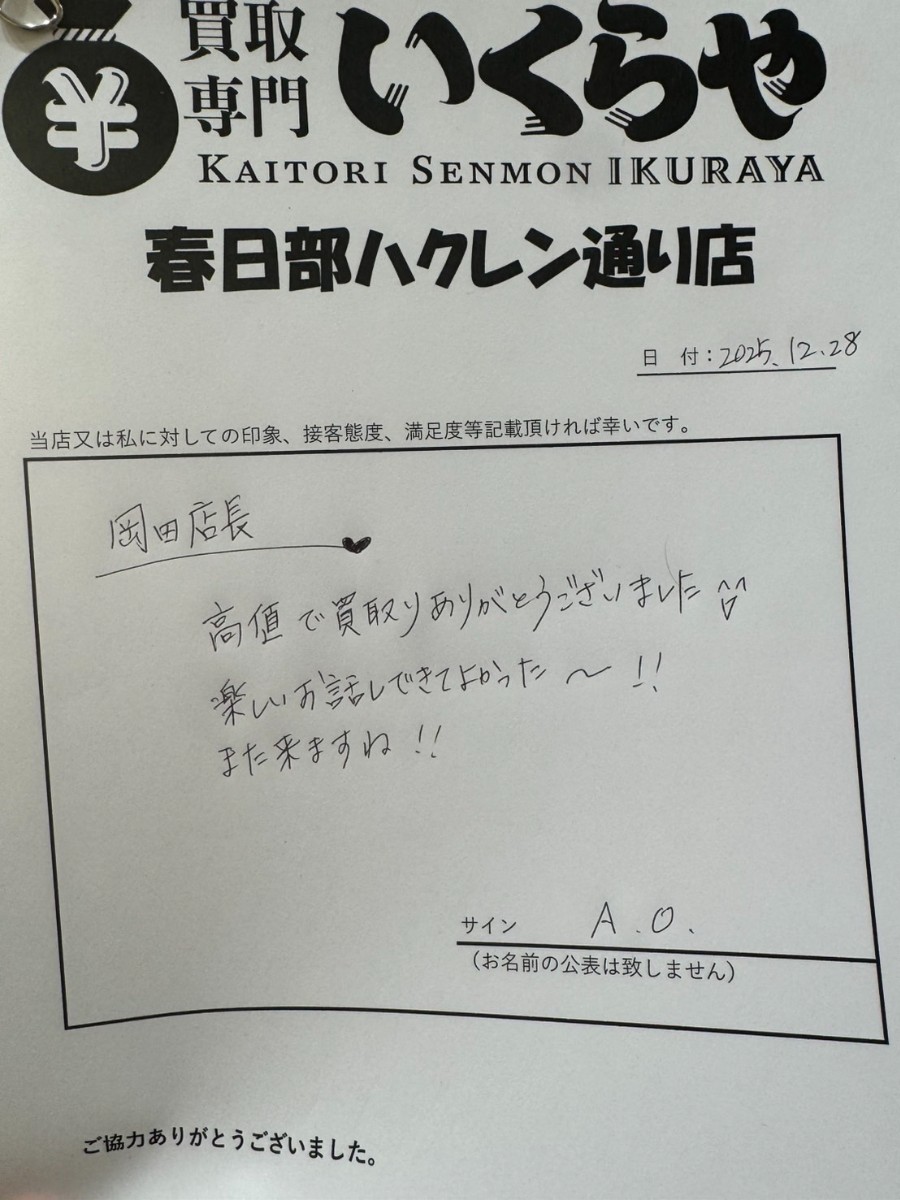 ¥
買取
専門
いくらや
KAITORI SENMON IKURAYA
春日部ハクレン通り店
日 付：2025.12.28
当店又は私に対しての印象、接客態度、満足度等記載頂ければ幸いです。
岡田店長
高値で買取りありがとうございました
楽しいお話しできてよかった〜!!
また来ますね!!
サイン A.O.
（お名前の公表は致しません）
ご協力ありがとうございました。